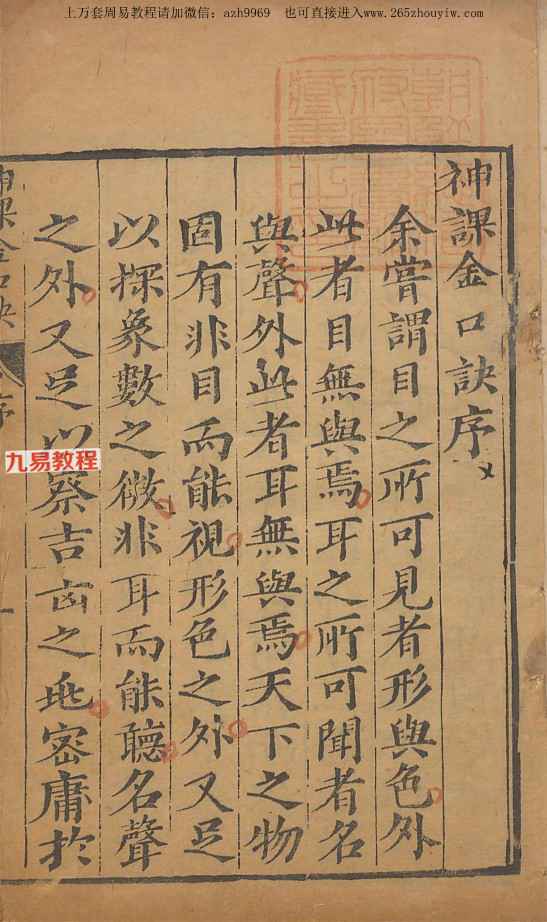 上万套周易教程请加微信：azh9969 也可直接进入www.265zhouyiw.com
神課金口訣序
余嘗謂目之所可見者形與色外
此者目無與焉耳之所可聞者名
與聲外此者耳無與焉天下之物
固有非目而能視形色之外又足
以探象數之微非耳而能聽名聲
之外又足以察吉㐫之兆密庸於
神課金口訣 序 一
九易教程